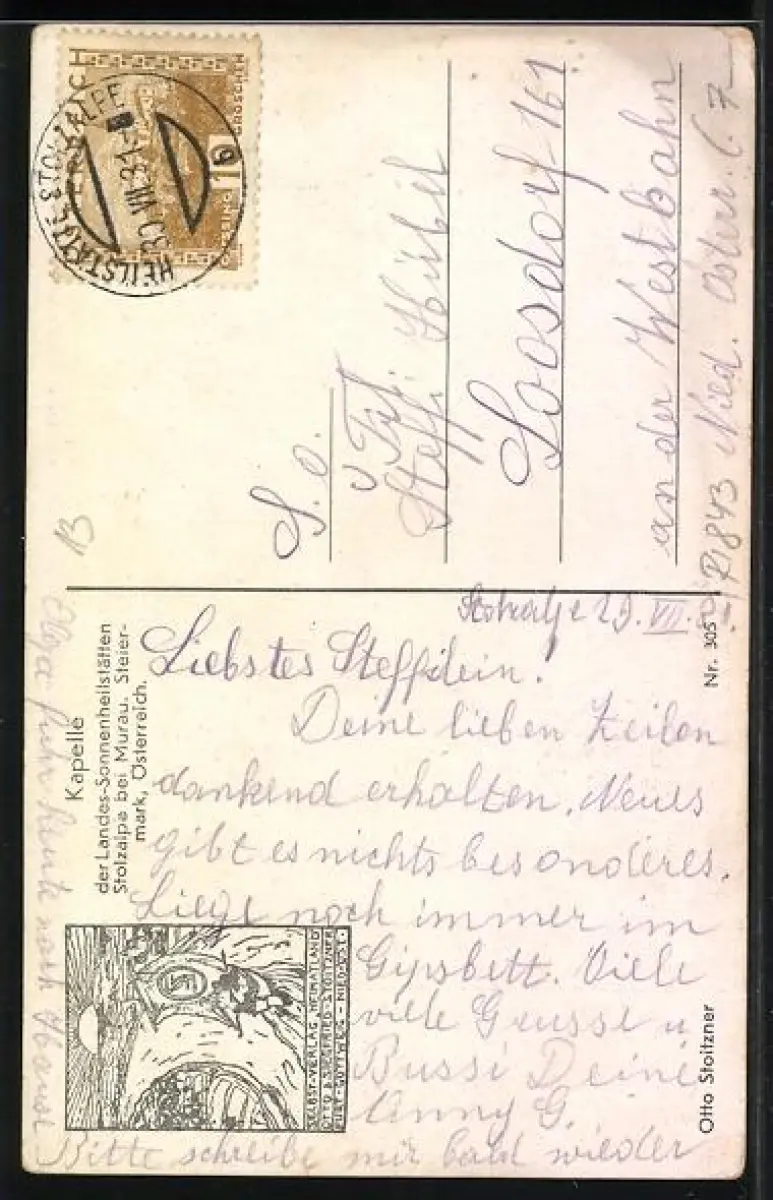 ÖSTERREICH
10 GROSCHEN
HEILSTÄTTE STOLZALPE
30.VIII.31
S. O.
Steffi Hübel
Loosdorf 161
an der Westbahn
Nied. Österr.
13
Kapelle
der Landes-Sonnenheilstätten
Stolzalpe bei Murau. Steier-
mark, Österreich.
Nr. 305
Otto Stoitzner
SELBST-VERLAG HEIMATLAND
OTTO & SIEGFRIED STOITZNER
FURT-GÖTTWEIG-NIED-ÖST.
Liebstes Steffilein!
Deine lieben Zeilen
dankend erhalten. Neues
gibt es nichts besonderes.
Liege noch immer im
Gipsbett. Viele
viele Grüsse u
Bussi Deine
Anny G.
Bitte schreibe mir bald wieder
fuhr heute nach Hause